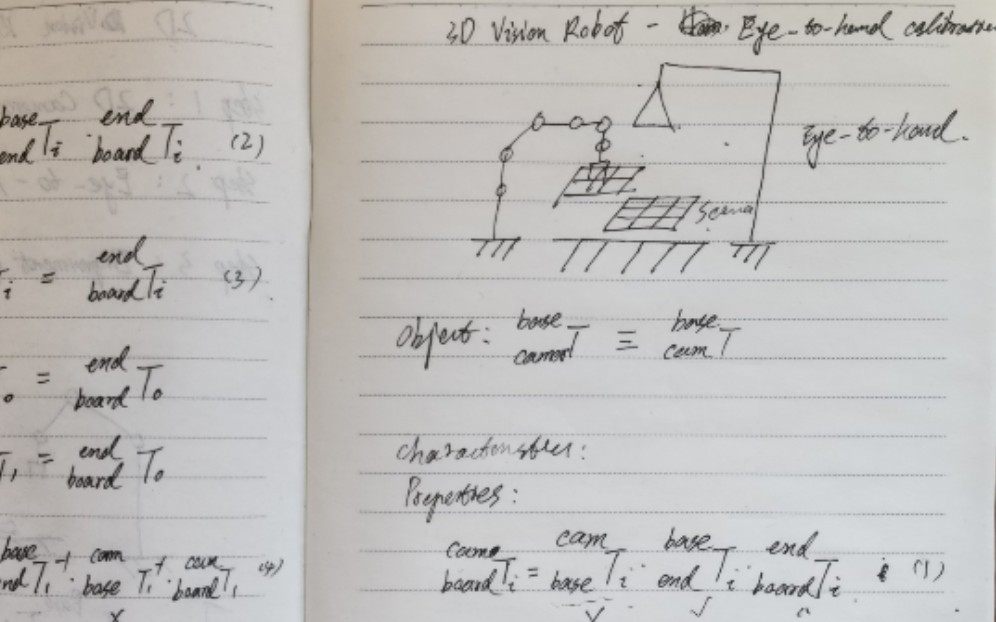 base end
end Ti · board Ti (2)
i = end board Ti (3)
o = end board To
T1 = end board To
base end T1⁻¹ · cam base T1⁻¹ · cam board T1 (4)
x
3D Vision Robot - Eye-to-hand
Eye-to-hand.
Scene
Object: base camera T ≡ base cam T
Properties:
came board Ti = cam base Ti · base end Ti · end board Ti (1)